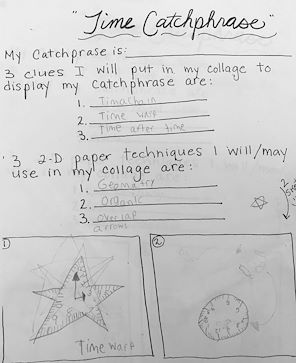 "Time Catchphrase"
My Catchprase is:
3 clues I will put in my collage to
display my catchphrase are:
1. Timachain
2. Time warp
3. Time after time
3 2-D paper techniques I will/may
use in my collage are:
1. Geometry
2. Organic
3. overlap
arrows
2
1)
2
Time warp